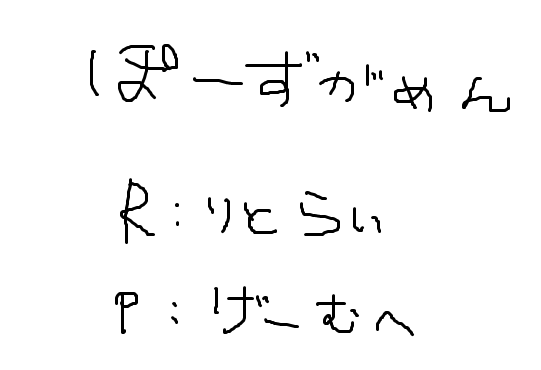 ぽーずがめん
R:りとらい
P:げーむへ